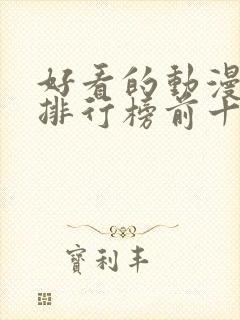 好看的動漫
排行榜前十
寶利丰